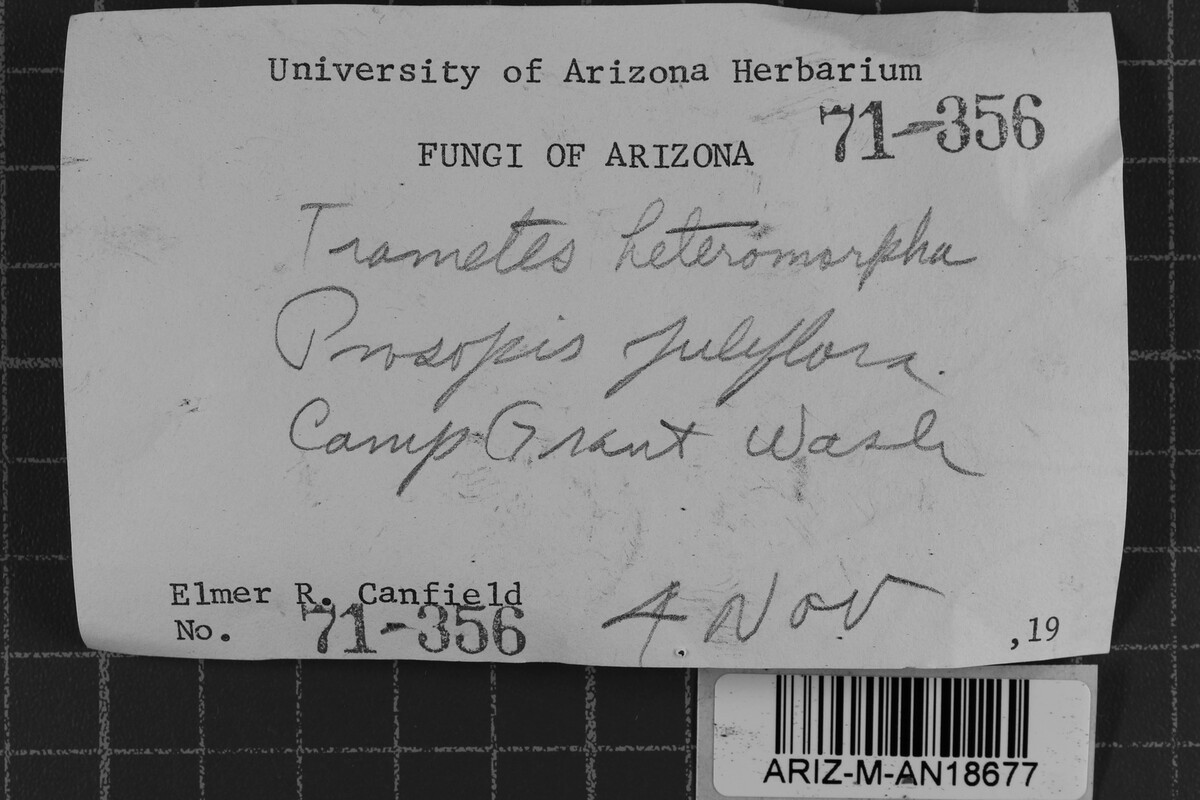 University of Arizona Herbarium
71-356
FUNGI OF ARIZONA
Trametes heteromorpha
Prosopis juliflora.
Camp Grant Wash
Elmer R. Canfield
No. 71-356
4 Nov ,19
ARIZ-M-AN18677